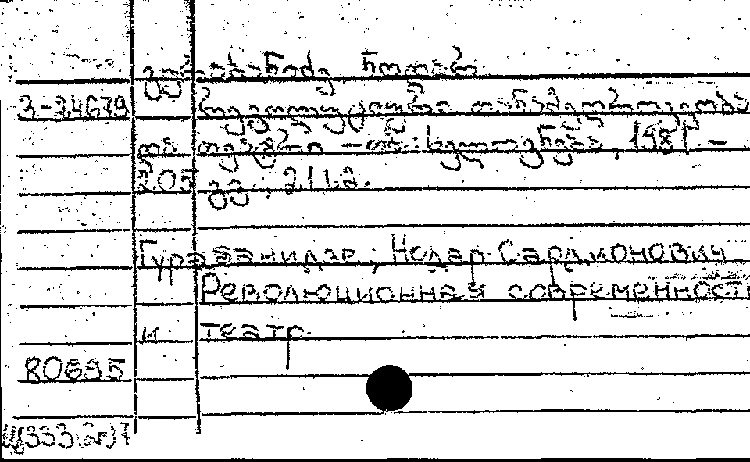 გურაბანიძე, ნოდარ
3-34679 რევოლუციური თანამედროვეობა
და თეატრი. – თბ.: ხელოვნება, 1981. –
205 გვ.; 21 სმ.
Гурабанидзе, Нодар Сардионович
Революционная современность
и театр.
80695
Щ333(2г)7